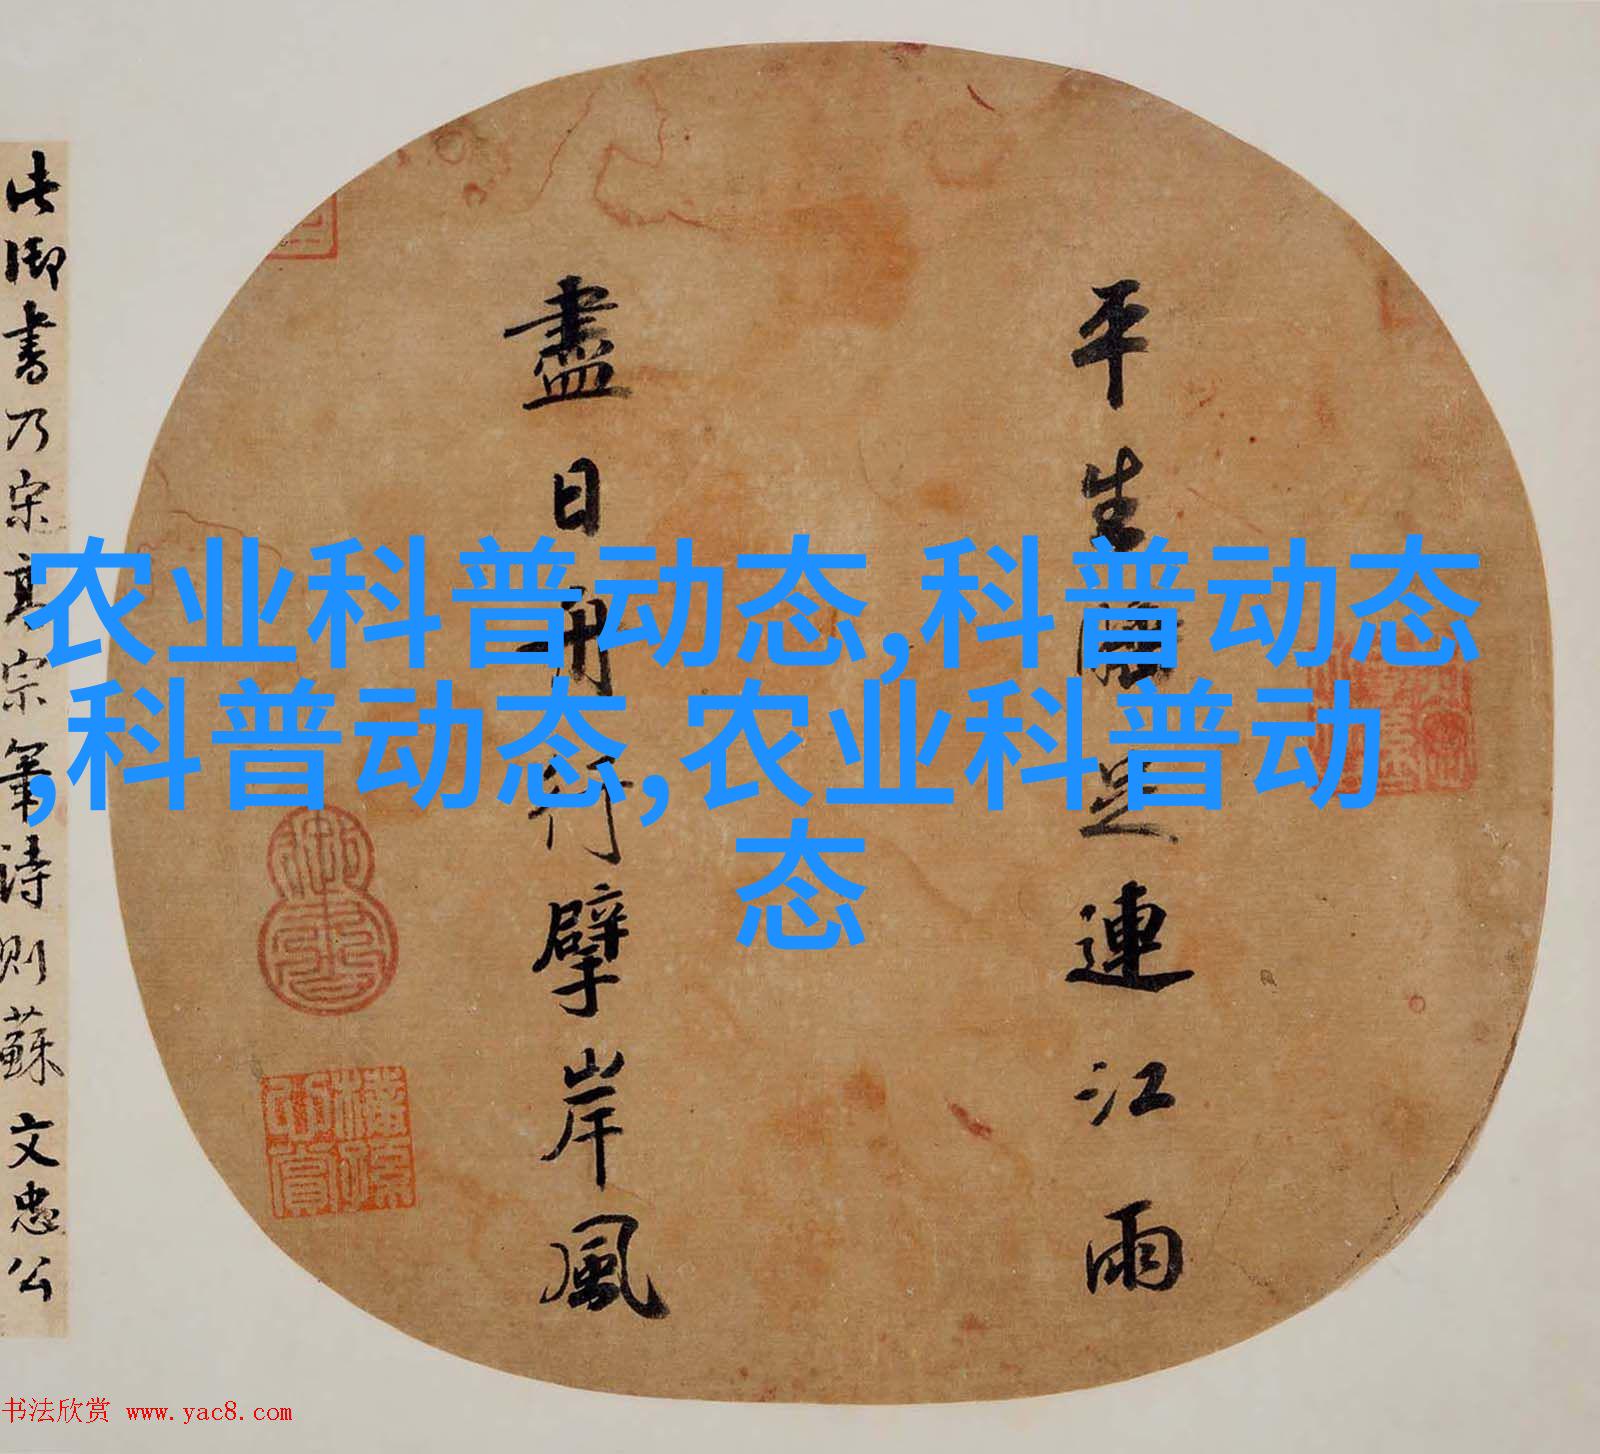 农业科普动态,科普动态
,科普动态,农业科普动
态
平生足連江雨
盡日舟行擘岸風
此御書乃宋高宗筆詩則蘇文忠公
书法欣赏 www.yac8.com